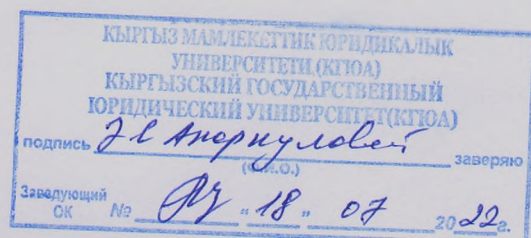 КЫРГЫЗ МАМЛЕКЕТТИК ЮРИДИКАЛЫК
УНИВЕРСИТЕТИ (КГЮА)
КЫРГЫЗСКИЙ ГОСУДАРСТВЕННЫЙ
ЮРИДИЧЕСКИЙ УНИВЕРСИТЕТ(КГЮА)
подпись Аноркуловой заверяю
(Ф.И.О.)
Заведующий
ОК № "18" 07 2022г.